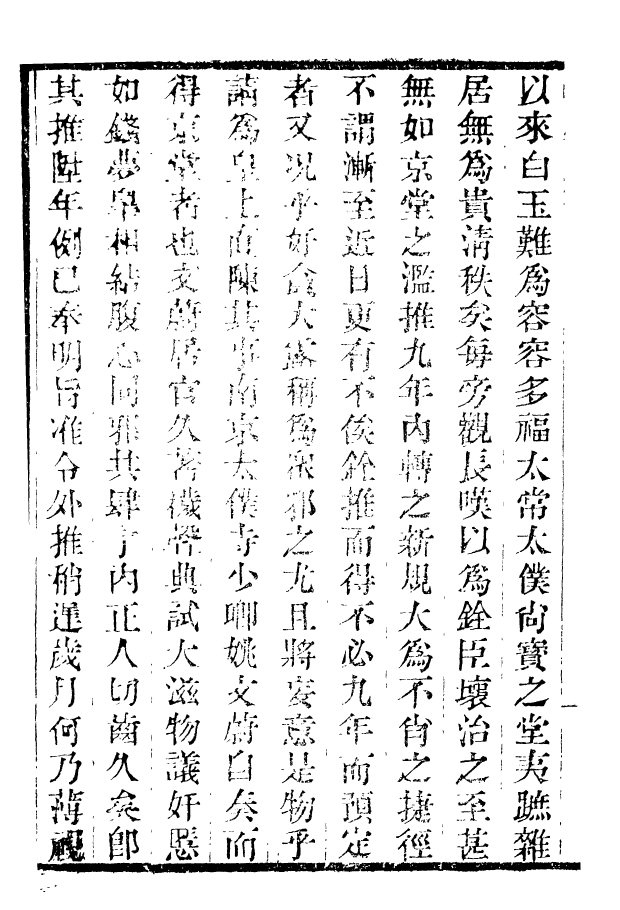 以來白玉難爲容容多福太常太僕尙寶之堂夷蹠雜
居無爲貴清秩矣每旁觀長嘆以爲銓臣壞治之至甚
無如京堂之濫推九年內轉之新規大爲不肖之捷徑
不謂漸至近日更有不俟銓推而得不必九年而預定
者又况乎奸貪大露稱爲衆邪之尤且將妄意是物乎
請爲皇上陳其事南京太僕寺少卿姚文蔚白而
得京堂者也文蔚居官久著穢聲典試大滋物議奸慝
如錢夢皋相結腹心同邪共肆于內正人切齒久矣卽
其推陞年例已奉明旨准令外推稍遲歲月何乃薄視